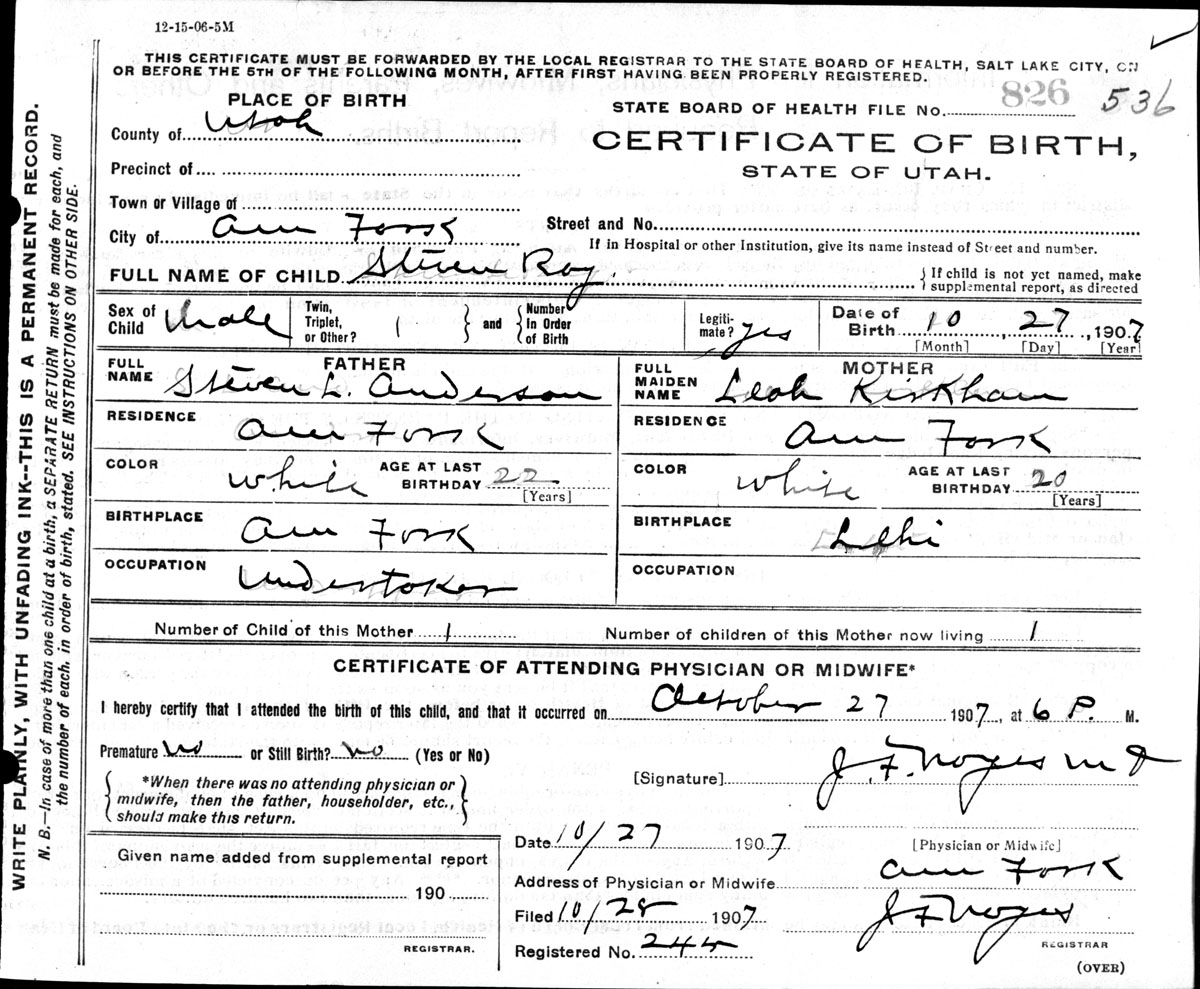 12-15-06-5M
THIS CERTIFICATE MUST BE FORWARDED BY THE LOCAL REGISTRAR TO THE STATE BOARD OF HEALTH, SALT LAKE CITY, ON
OR BEFORE THE 5TH OF THE FOLLOWING MONTH, AFTER FIRST HAVING BEEN PROPERLY REGISTERED.
WRITE PLAINLY, WITH UNFADING INK--THIS IS A PERMANENT RECORD.
N. B.—In case of more than one child at a birth, a SEPARATE RETURN must be made for each, and
the number of each, in order of birth, stated. SEE INSTRUCTIONS ON OTHER SIDE.
PLACE OF BIRTH
STATE BOARD OF HEALTH FILE No. 826 536
County of Utah
CERTIFICATE OF BIRTH,
STATE OF UTAH.
Precinct of
Town or Village of
City of Am Fork Street and No.
If in Hospital or other Institution, give its name instead of Street and number.
FULL NAME OF CHILD Steven Roy.
{ If child is not yet named, make
supplemental report, as directed
Sex of Child Male Twin, Triplet, or Other? 1 } and { Number In Order of Birth Legiti- mate? yes Date of Birth 10, 27, 1907
[Month] [Day] [Year]
FATHER MOTHER
FULL NAME Steven L. Anderson FULL MAIDEN NAME Leah Kirkham
RESIDENCE Am Fork RESIDENCE Am Fork
COLOR White AGE AT LAST BIRTHDAY 22 [Years] COLOR White AGE AT LAST BIRTHDAY 20 [Years]
BIRTHPLACE Am Fork BIRTHPLACE Lehi
OCCUPATION Undertaker OCCUPATION
Number of Child of this Mother 1 Number of children of this Mother now living 1
CERTIFICATE OF ATTENDING PHYSICIAN OR MIDWIFE*
I hereby certify that I attended the birth of this child, and that it occurred on October 27 1907, at 6 P. M.
Premature No or Still Birth? No (Yes or No)
[Signature] J. F. Noyes M D
{ *When there was no attending physician or
midwife, then the father, householder, etc.,
should make this return. }
Date 10/27 1907 [Physician or Midwife]
Given name added from supplemental report
Address of Physician or Midwife Am Fork
190
Filed 10/28 1907 J F Noyes
REGISTRAR.
Registered No. 244 REGISTRAR
(OVER)